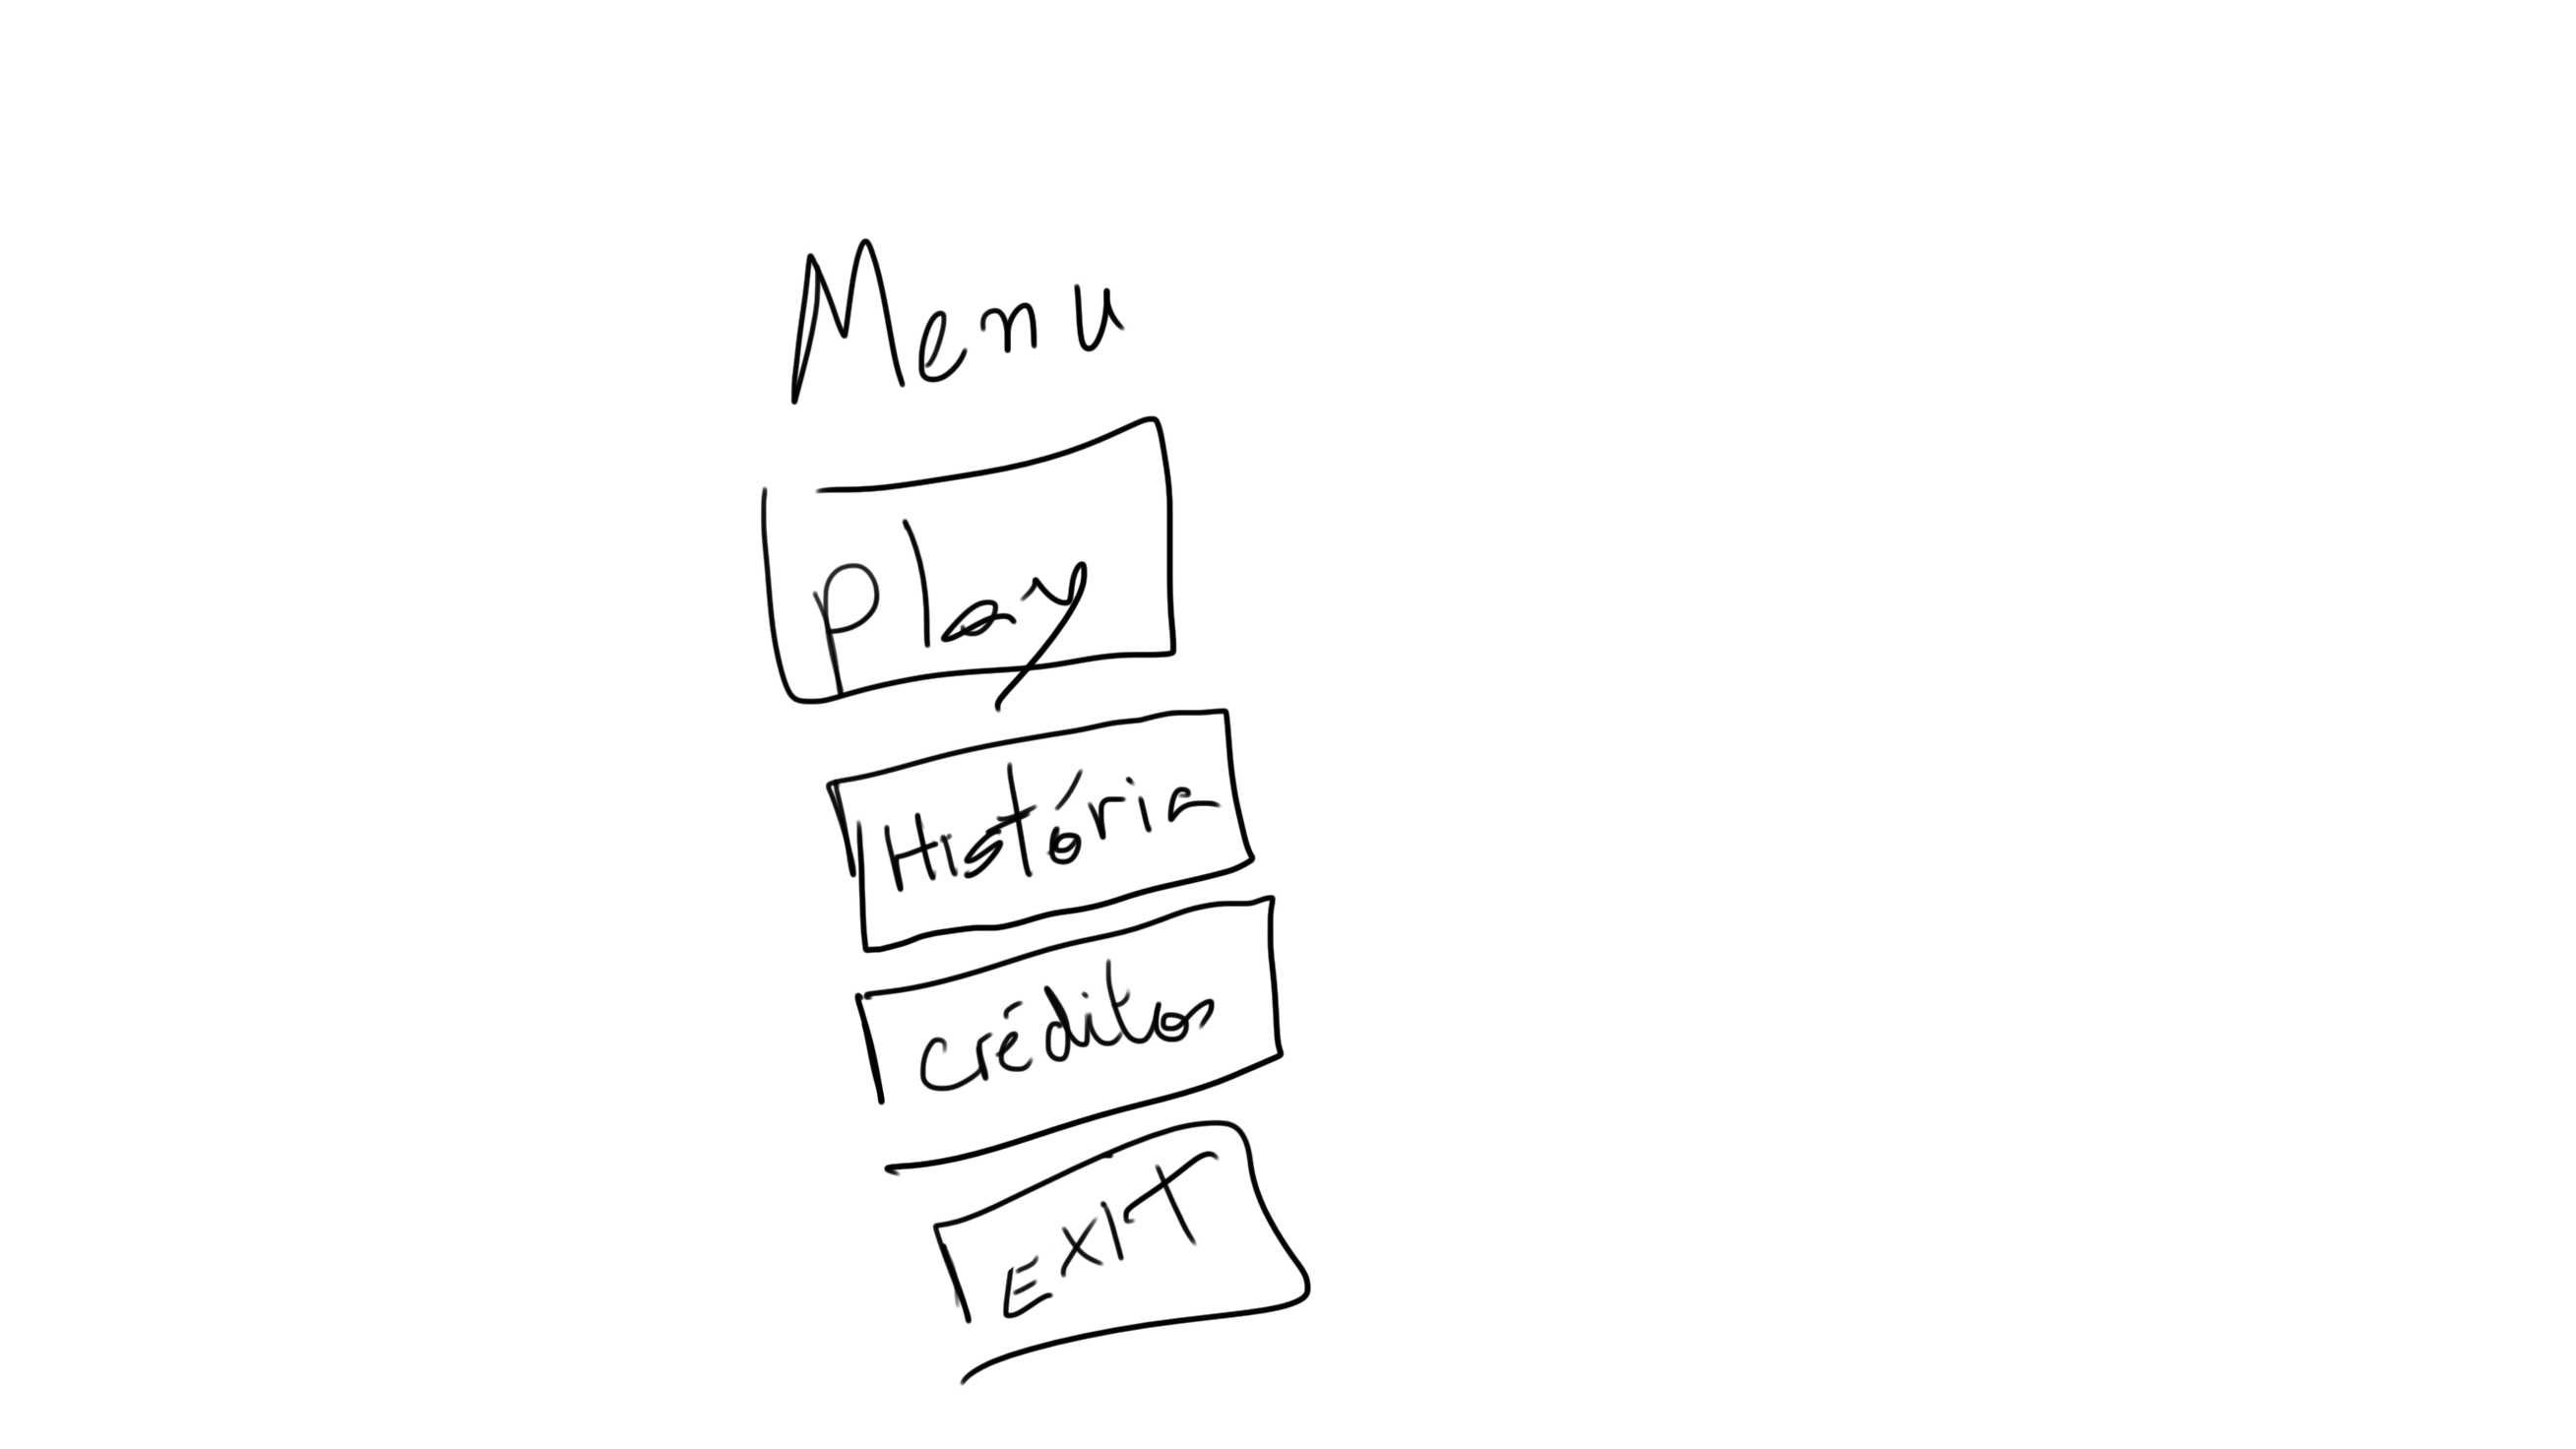 Menu
Play
História
Créditos
EXIT